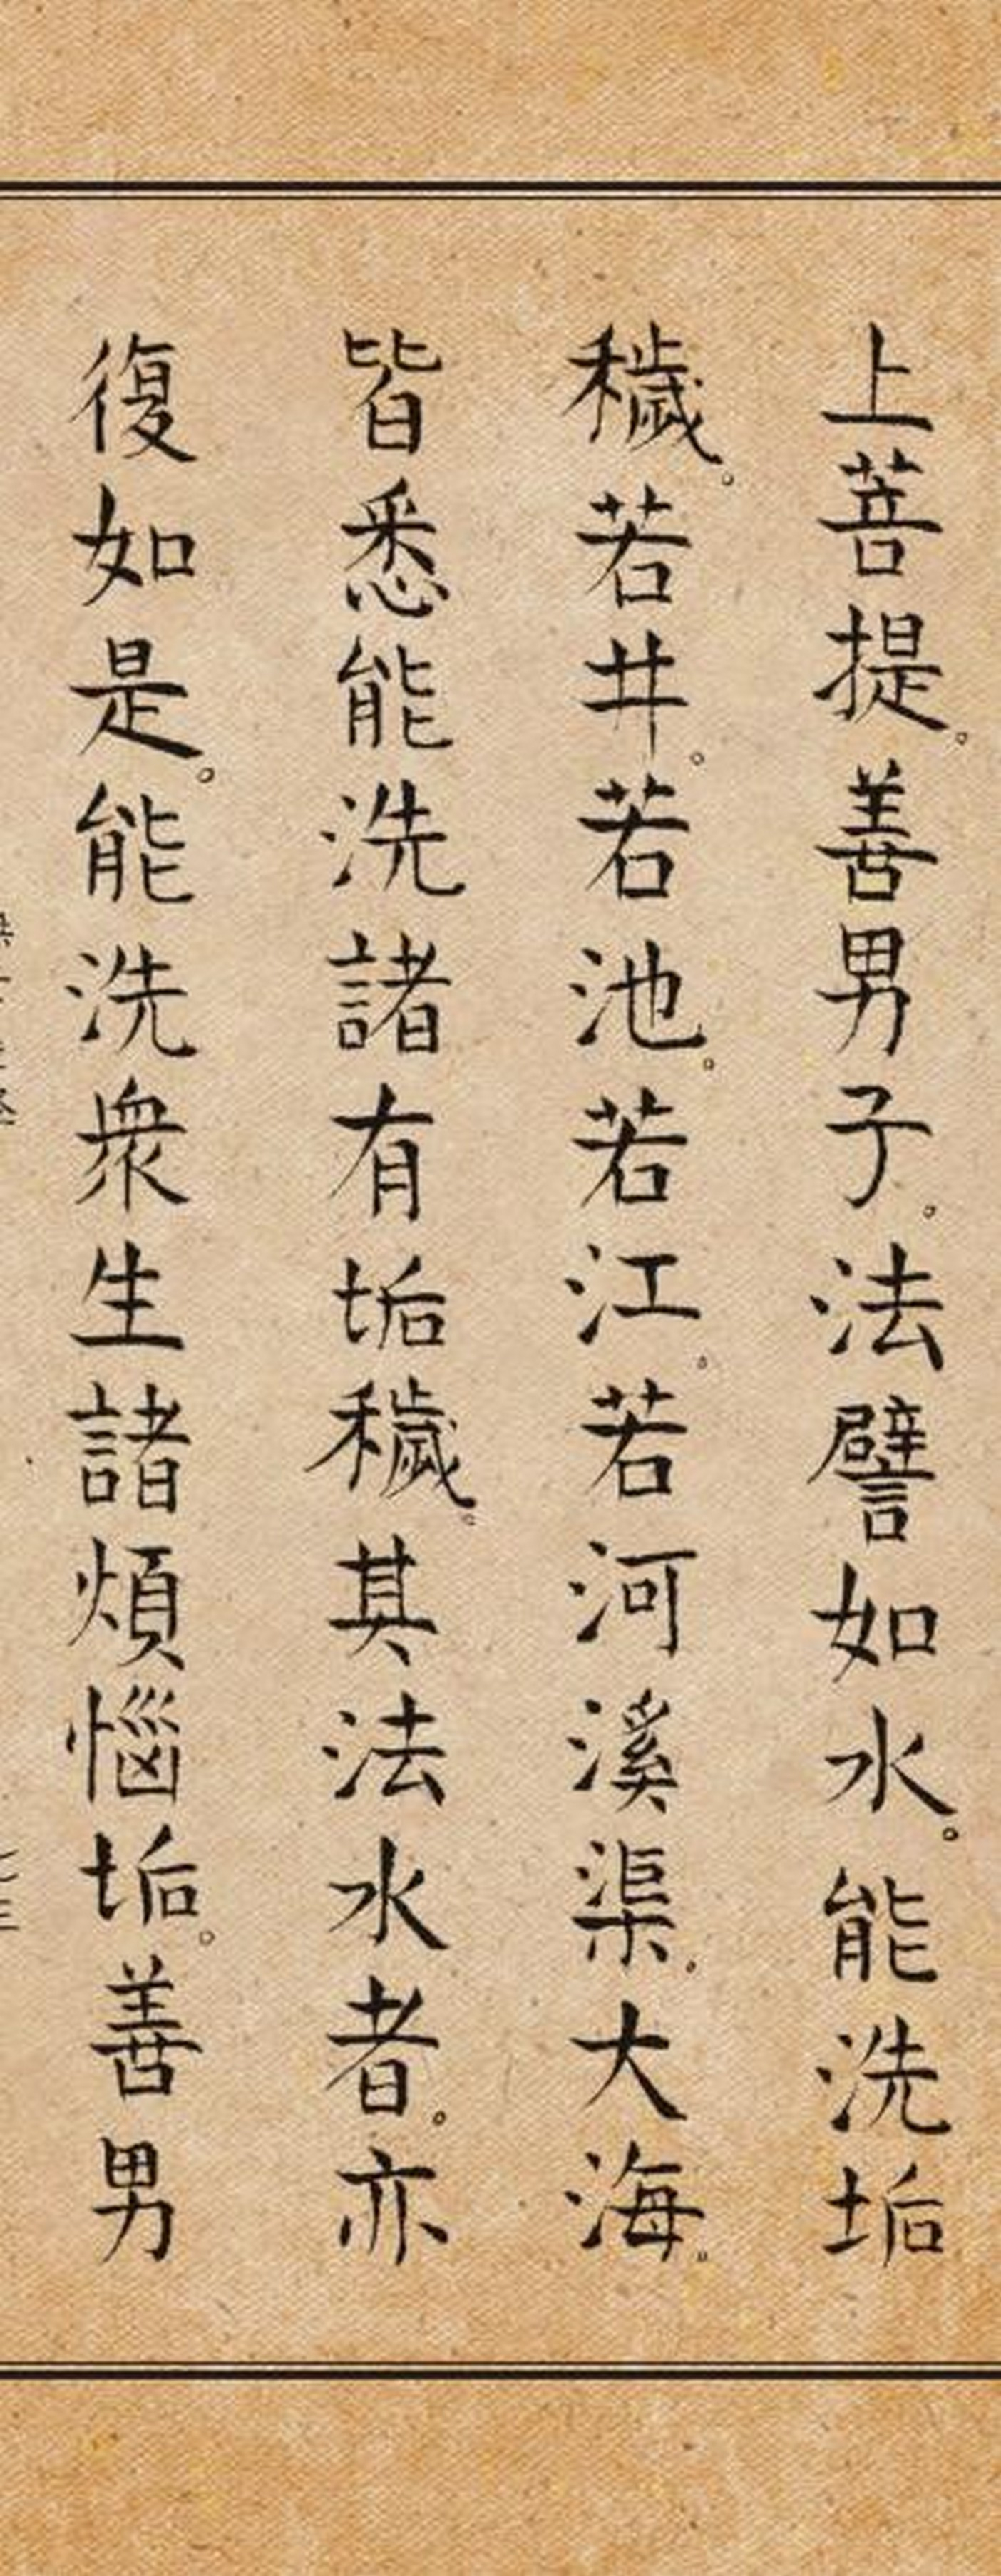 上菩提。善男子。法譬如水。能洗垢
穢。若井。若池。若江。若河溪渠。大海。
皆悉能洗諸有垢穢。其法水者。亦
復如是。能洗衆生諸煩惱垢。善男